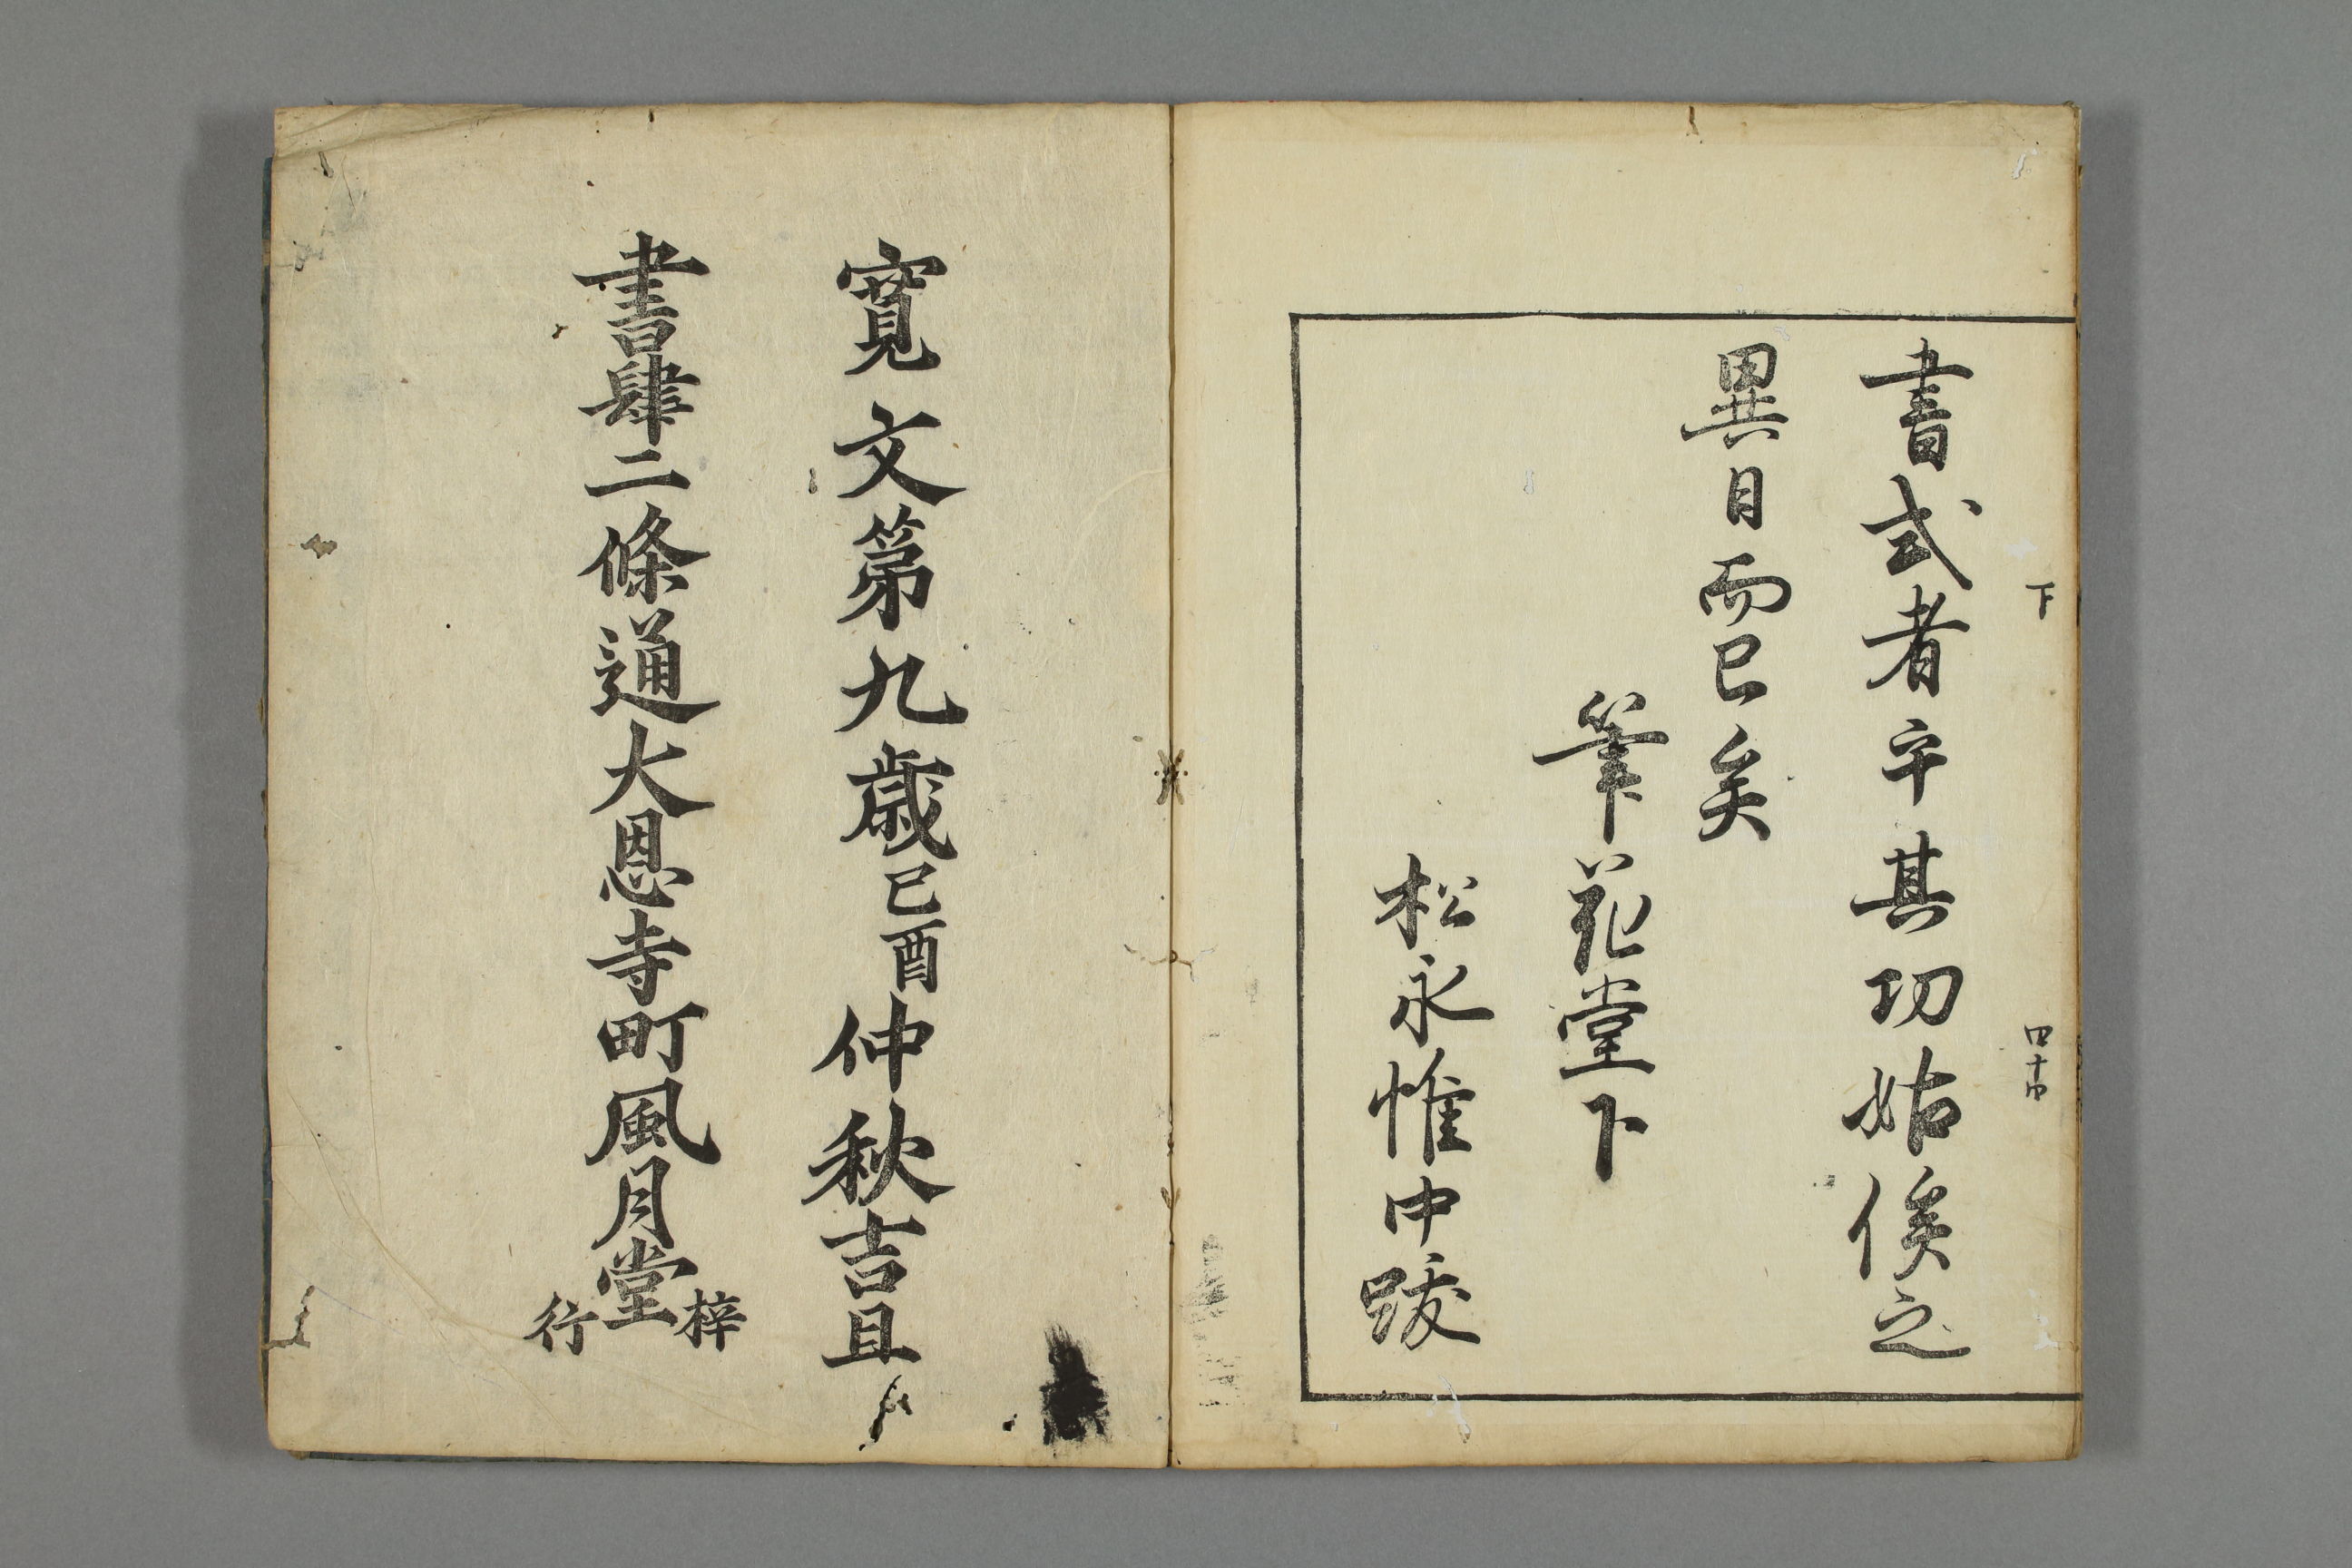 書式者卒其功姑俟之
異日而已矣
筆花堂下
松永惟中跋
下
四十四
寛文第九歳己酉仲秋吉旦
書肆二條通大恩寺町風月堂梓行